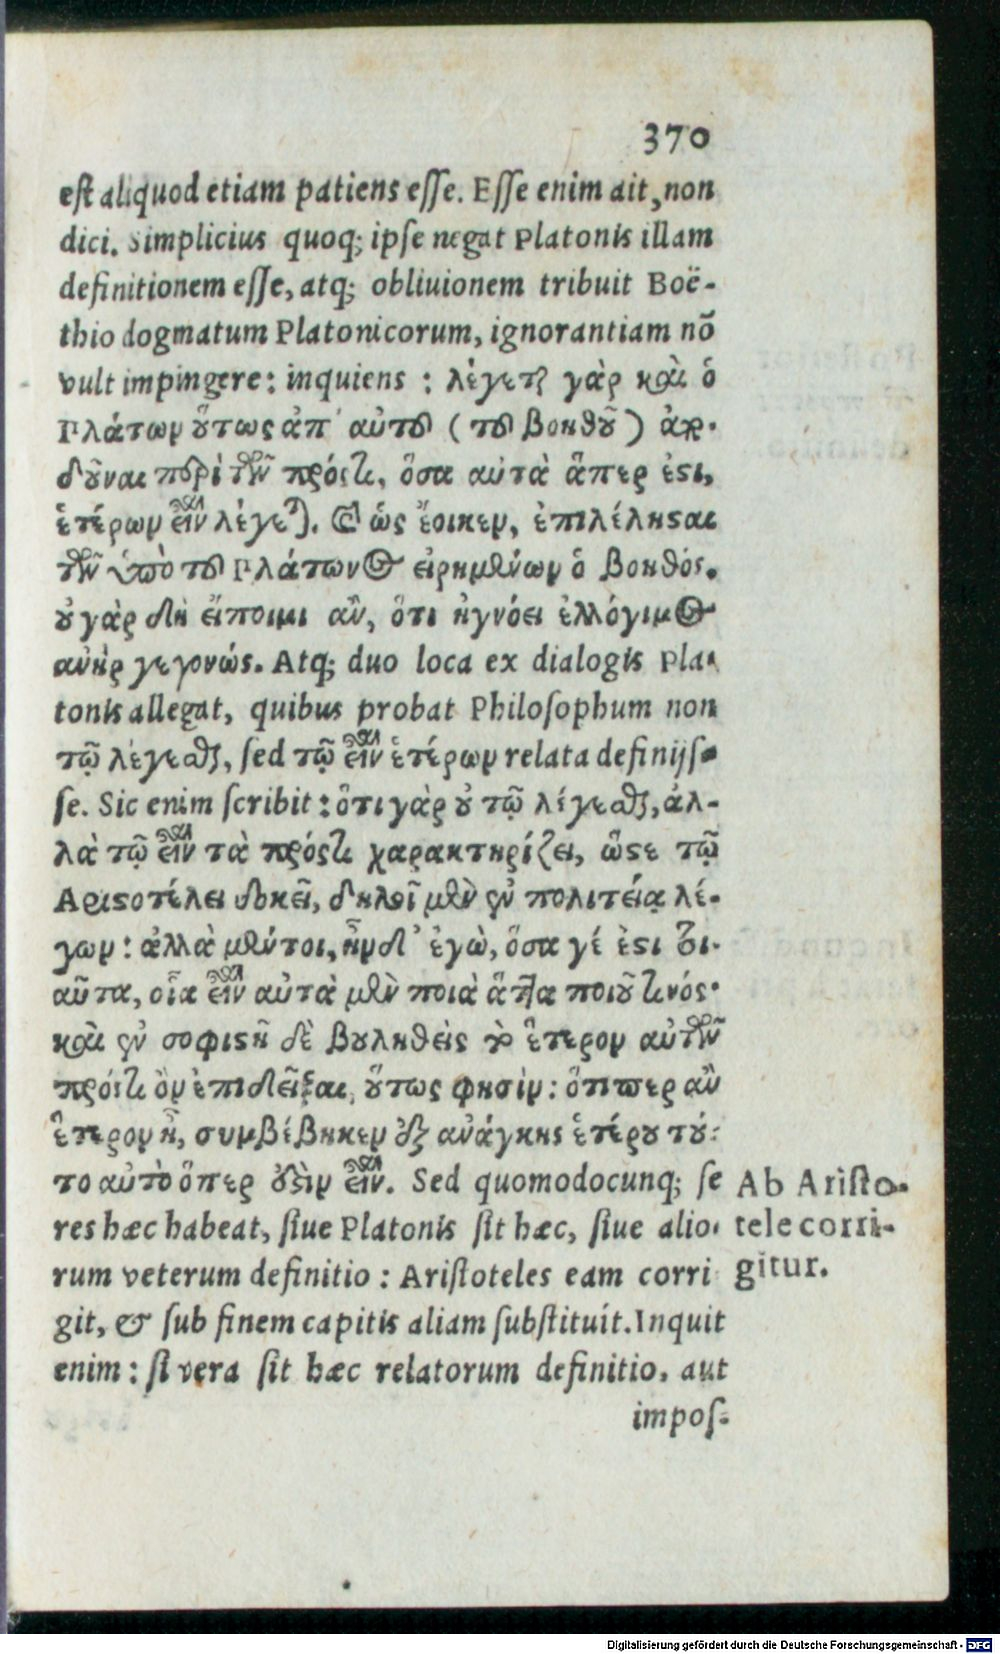 370
est aliquod etiam patiens esse. Esse enim ait, non
dici. Simplicius quoq; ipse negat Platonis illam
definitionem esse, atq; obliuionem tribuit Boë-
thio dogmatum Platonicorum, ignorantiam nõ
vult impingere: inquiens: λέγεται γὰρ καὶ ὁ
Πλάτων οὕτως ἀπ' αὐτοῦ (τοῦ βοηθοῦ) ἀπο-
δοῦναι περὶ τῶν πρόςτι, ὅσα αὐτὰ ἅπερ ἐστι,
ἑτέρων εἶναι λέγεται. Καὶ ὡς ἔοικεν, ἐπιλέλησται
τῶν ὑπὸ τοῦ Πλάτωνος εἰρημένων ὁ βοηθός.
οὐ γὰρ δὴ εἴποιμι ἂν, ὅτι ἠγνόει ἐλλόγιμος
ανὴρ γεγονώς. Atq; duo loca ex dialogis Pla-
tonis allegat, quibus probat Philosophum non
τῷ λέγεσθαι, sed τῷ εἶναι ἑτέρων relata definijs-
se. Sic enim scribit: ὅτι γὰρ οὐ τῷ λέγεσθαι, ἀλ-
λὰ τῷ εἶναι τὰ πρόςτι χαρακτηρίζει, ὥστε τῷ
Αριστοτέλει δοκεῖ, δηλοῖ μὲν ἐν πολιτείᾳ λέ-
γων: ἀλλὰ μέντοι, ἦν δ' ἐγὼ, ὅσα γέ ἐστι τοι-
αῦτα, οἷα εἶναι αὐτὰ μὲν ποιὰ ἄττα ποιοῦ τινός·
καὶ ἐν σοφιστῇ δὲ βουληθεὶς τὸ ἕτερον αὐτῶν
πρόςτι ὂν ἐπιδεῖξαι, οὕτως φησίν: ὅτιπερ ἂν
ἕτερον ᾖ, συμβέβηκεν ἐξ ανάγκης ἑτέρου τοῦ-
το αὐτὸ ὅπερ ἐστὶν εἶναι. Sed quomodocunq; se
res hæc habeat, siue Platonis sit hæc, siue alio-
rum veterum definitio: Aristoteles eam corri
git, & sub finem capitis aliam substituit. Inquit
enim: si vera sit hæc relatorum definitio, aut
impos-
Ab Aristo-
tele corri-
gitur.
Digitalisierung gefördert durch die Deutsche Forschungsgemeinschaft - DFG